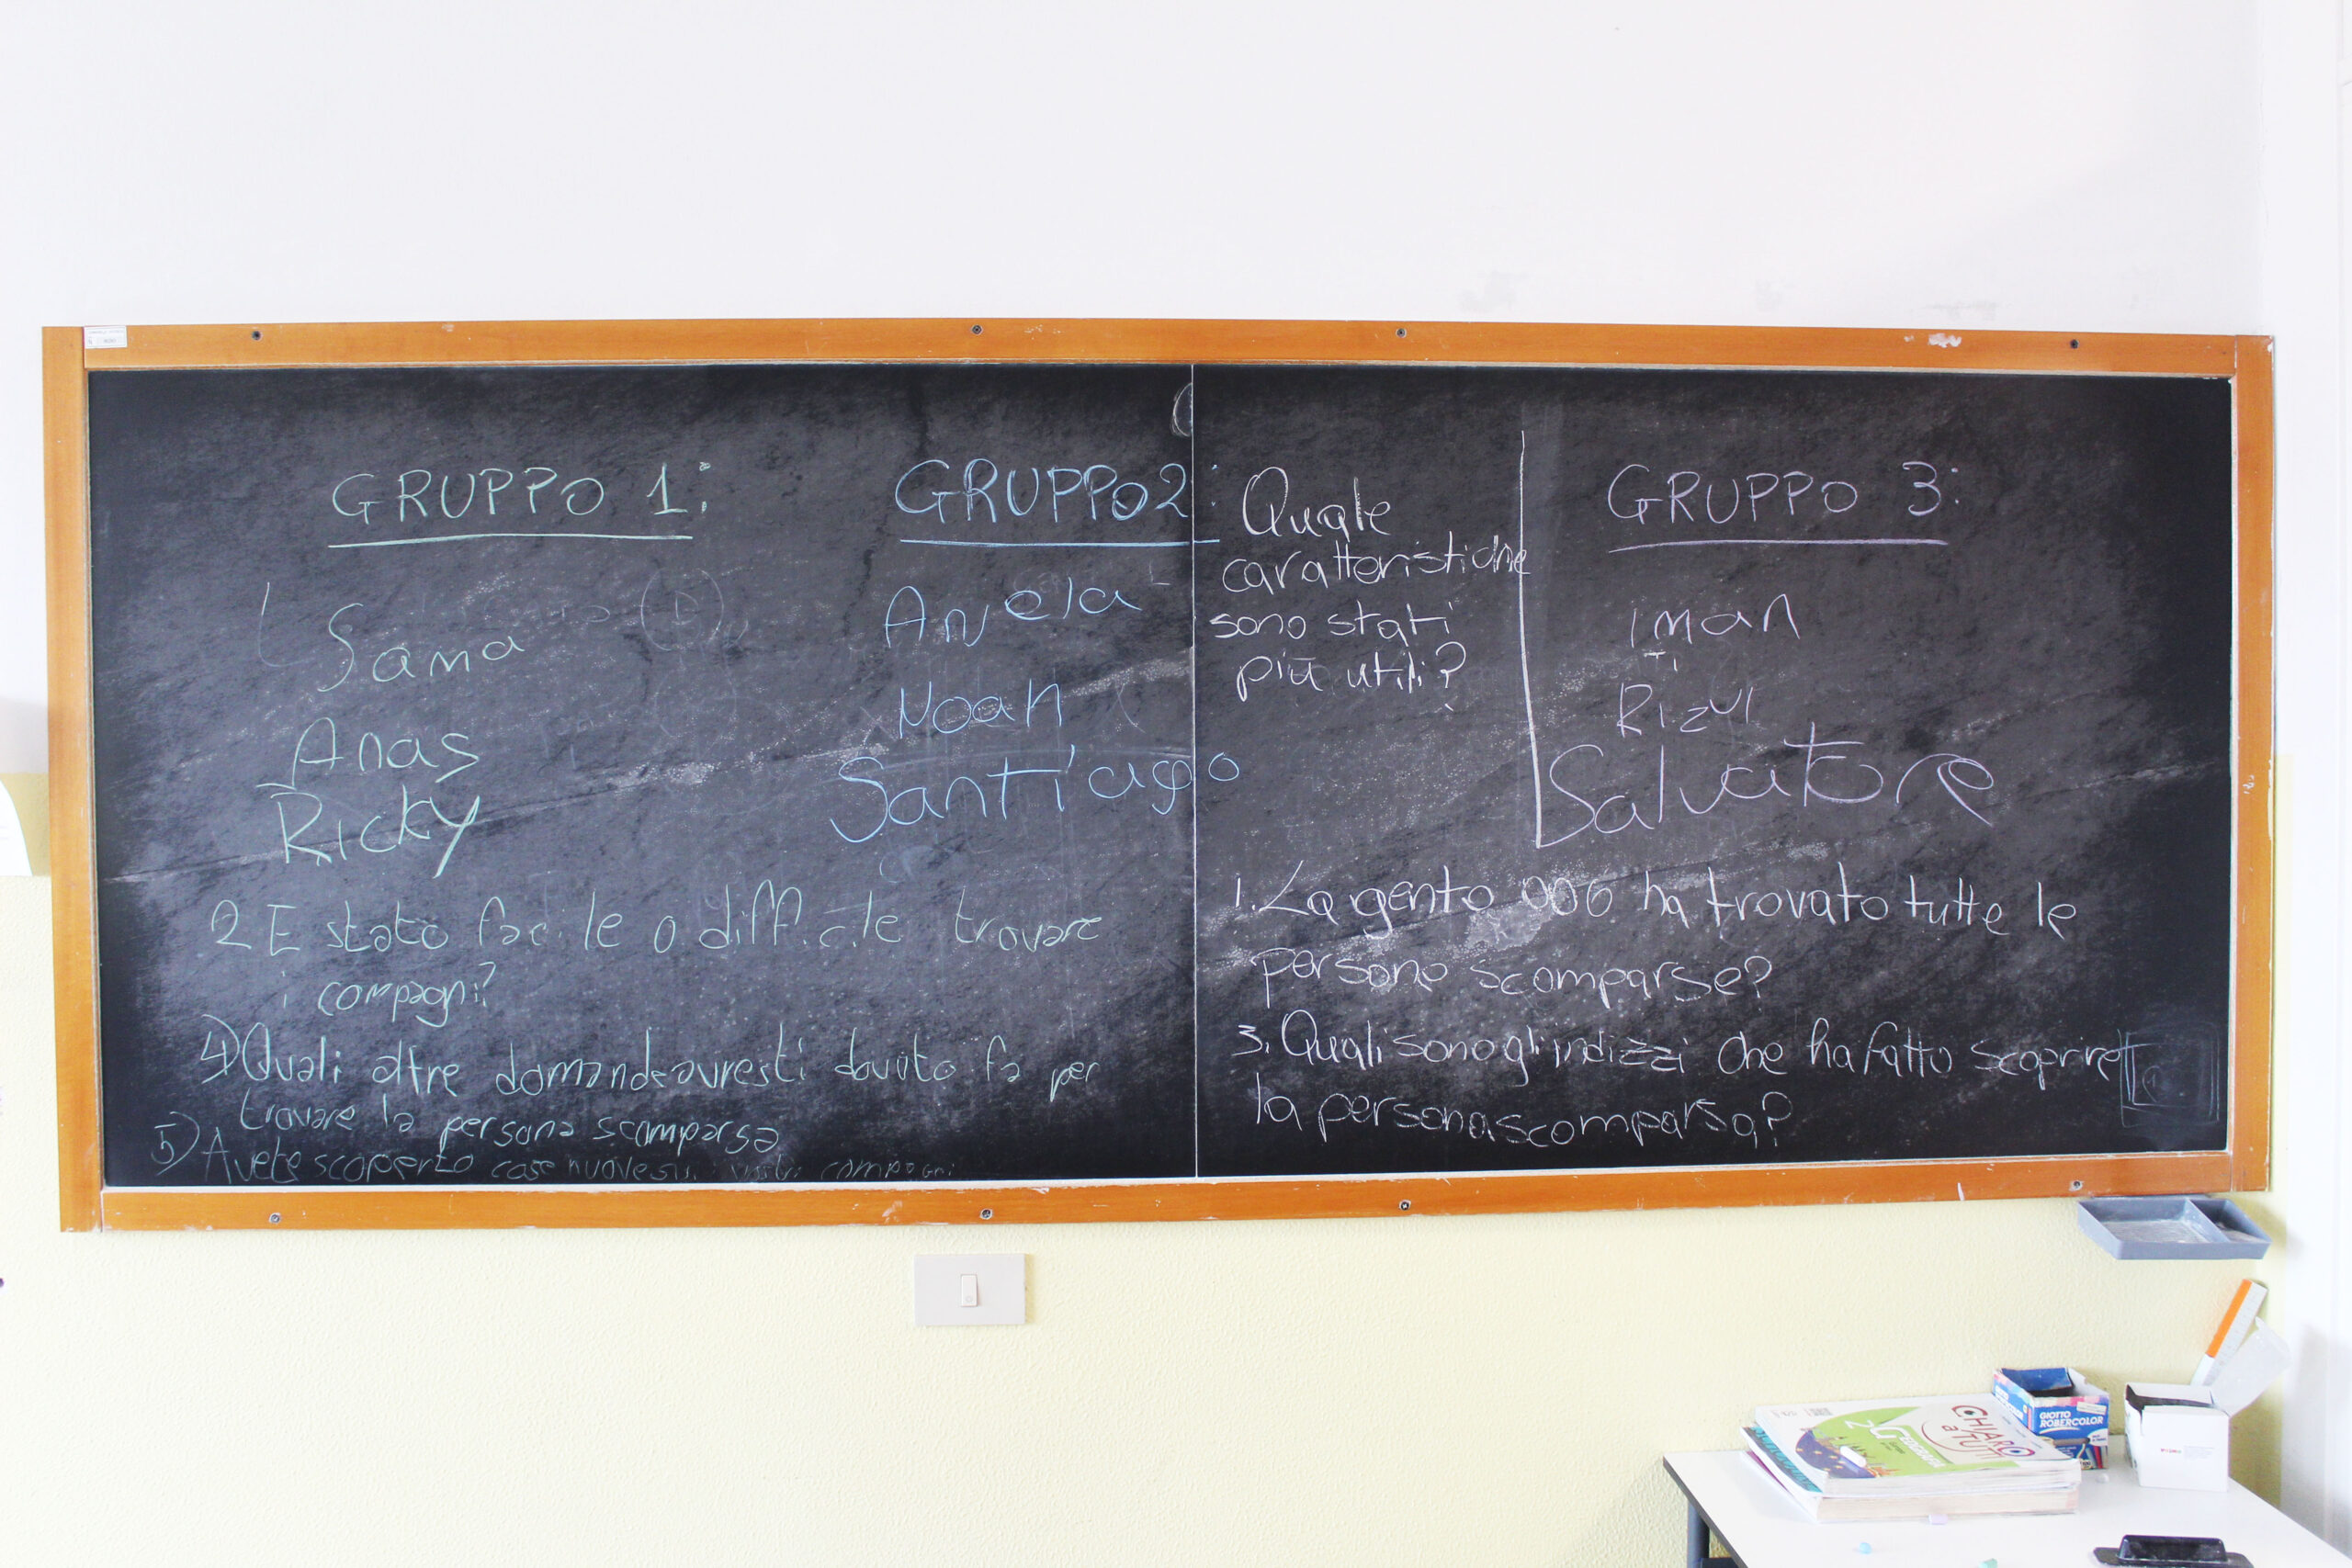 GRUPPO 1:
Sama
Anas
Ricky
GRUPPO 2:
Anela
Noah
Santiago
Quale
caratteristiche
sono stati
più utili?
GRUPPO 3:
Iman
Rizul
Salvatore
2 E stato facile o difficile trovare
i compagni?
4) Quali altre domande avresti dovuto fa per
trovare la persona scomparsa
5) Avete scoperto cose nuove sui vostri compagni
1. L'argento 006 ha trovato tutte le
persone scomparse?
3. Quali sono gli indizzi che ha fatto scoprire
la persona scomparsa?
GIOTTO
ROBERCOLOR
CHIARO
a TUTTI
2 Geografia